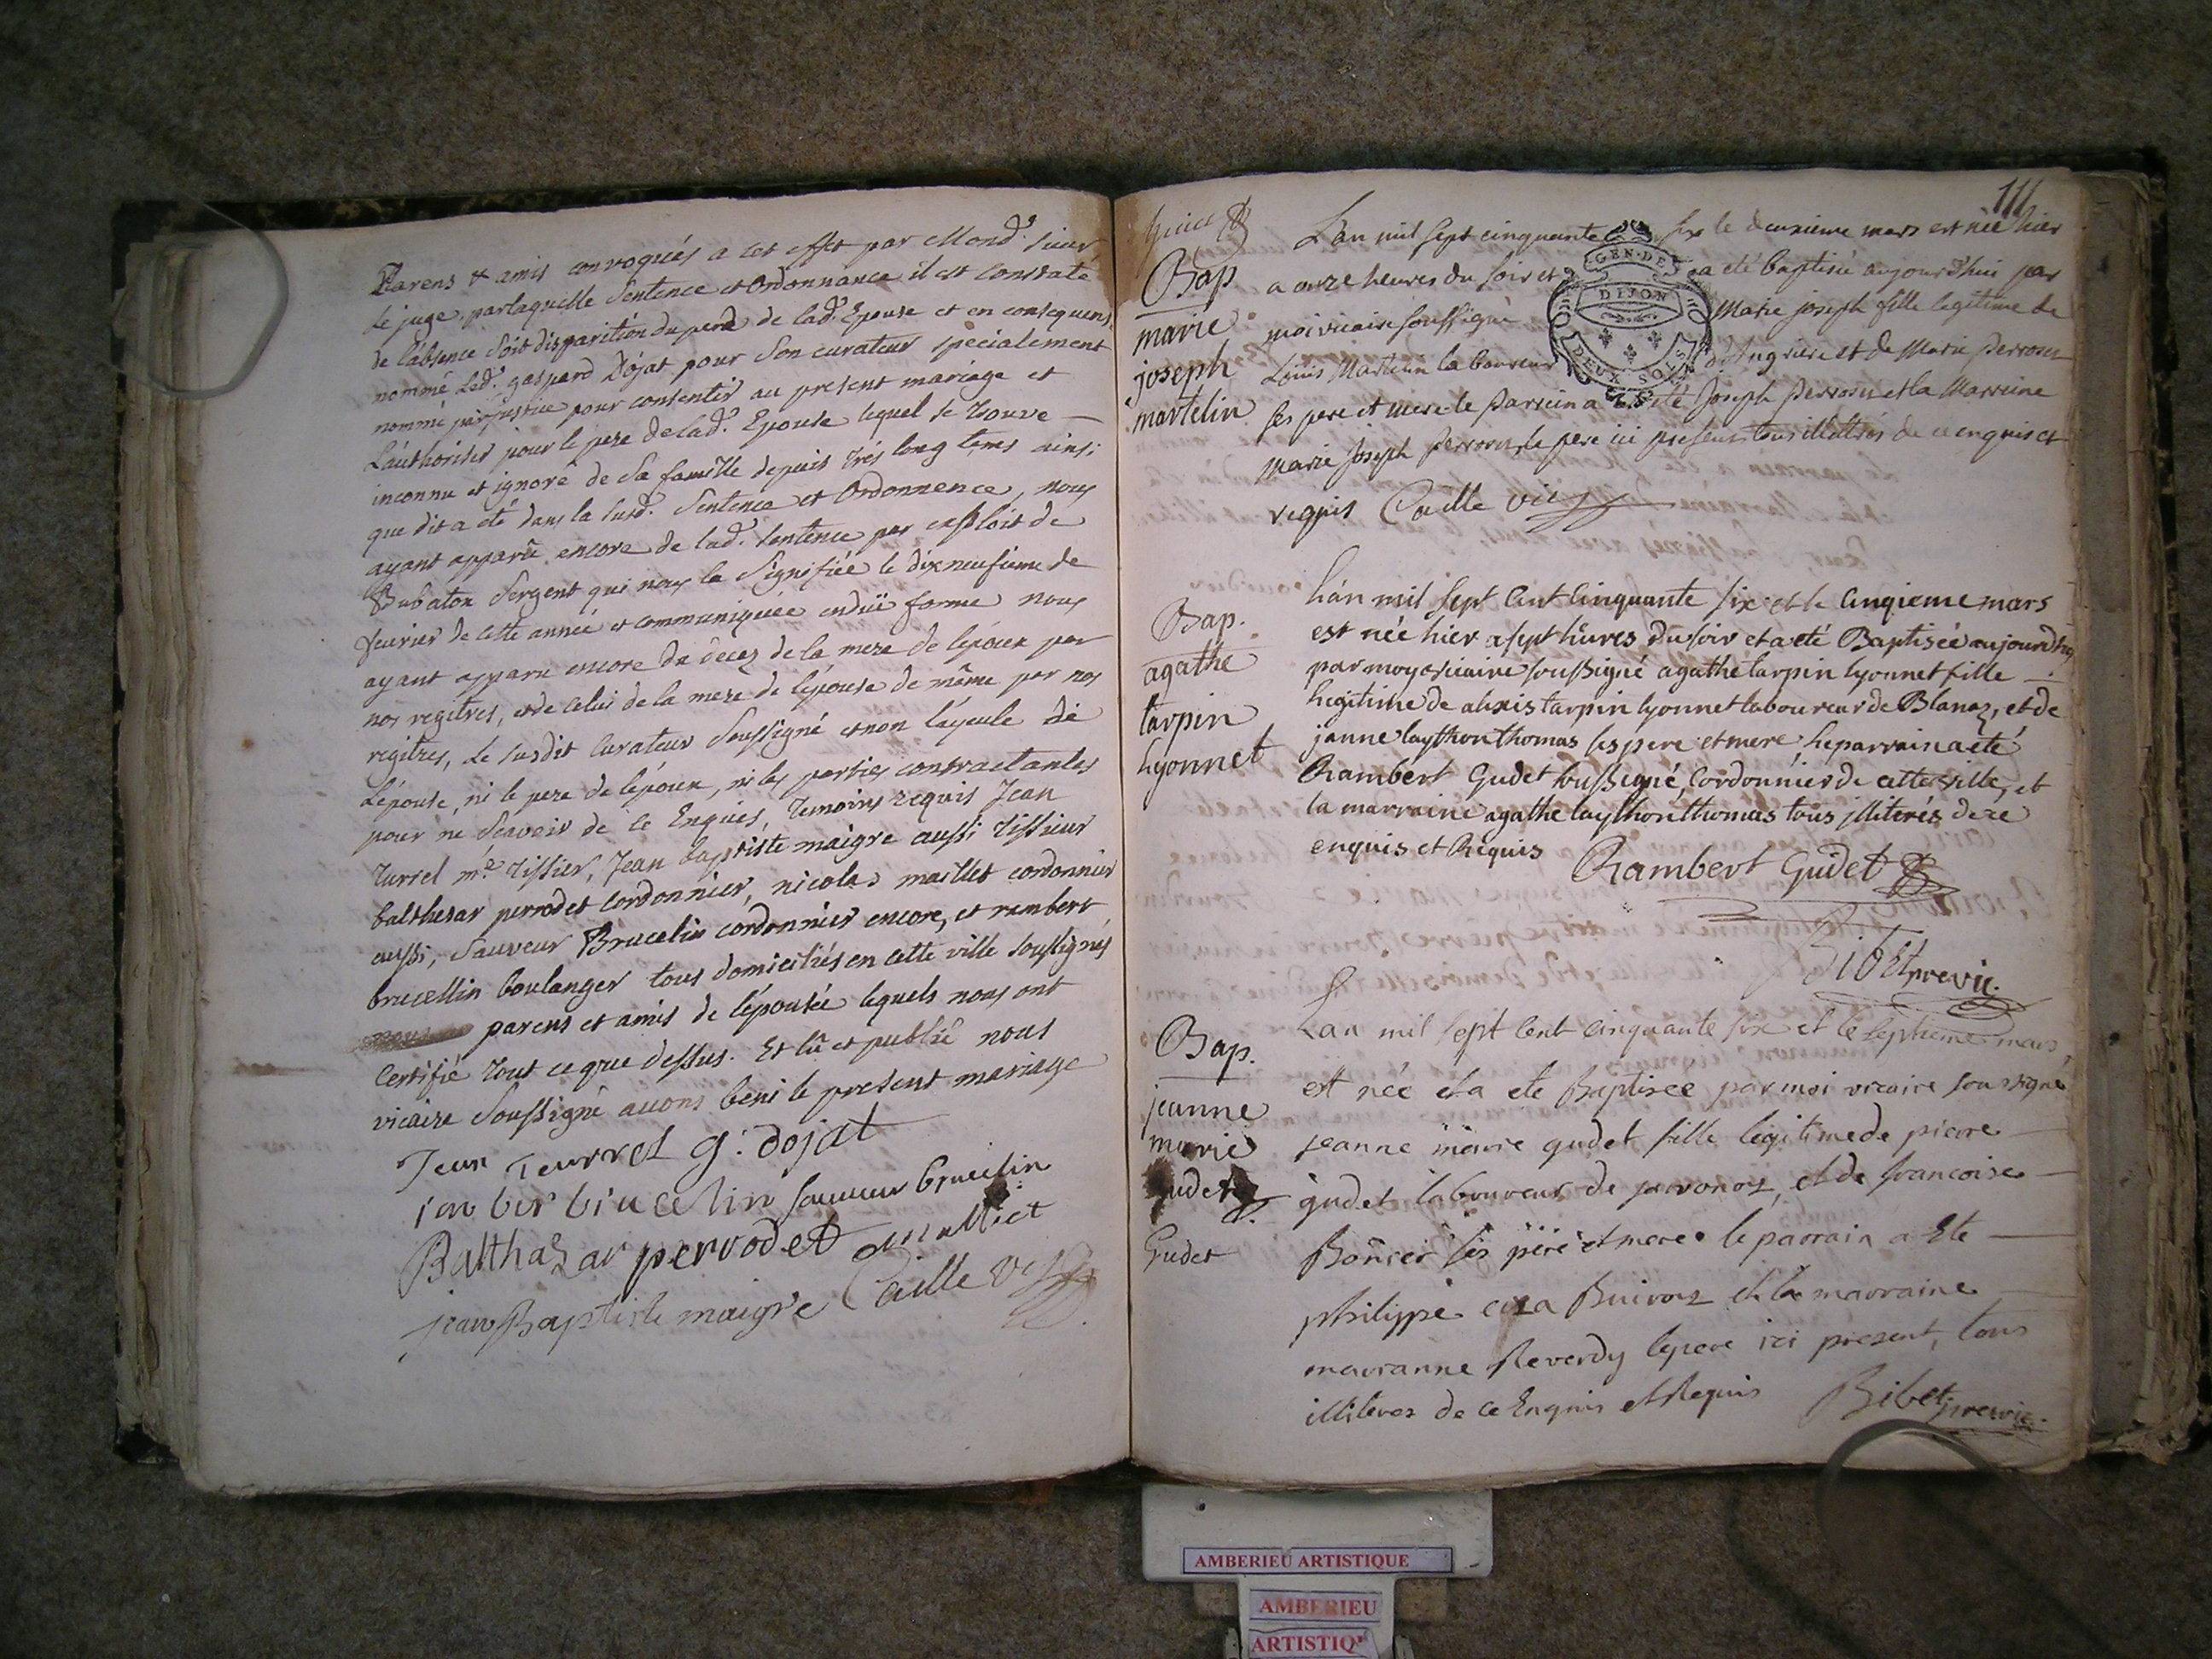 Parens & amis convoqués a cet effet par Mond. sieur
le juge, par laquelle Sentence et Ordonnance il est constaté
de l'absence soit disparition du pere de lad. Epouse et en consequens
nommé Led. gaspard Dojat pour son curateur specialement
nommé par justice pour consentir au present mariage et
L'authoriser pour le pere de lad. Epouse lequel se trouve
inconnu et ignoré de sa famille depuis trés long tems ainsi
que dit a été dans la susd. Sentence et Ordonnence, nous
ayant apparu encore de lad. sentence par exploit de
Bubaton Sergent qui nous la signifiée le dixneufieme de
fevrier de cette année et communiquée en düe forme nous
ayant apparu encore du decez de la mere de lepoux par
nos regitres, et de celui de la mere de lepouse de même par nos
regitres, le susdit curateur soussigné et non l'ayeule de
L'épouse, ni le pere de lépoux, ni les parties contractantes
pour ne scavoir de ce Enquis, temoins requis Jean
turrel me. tissier, Jean baptiste maigre aussi tissieur
balthesar perrodet cordonnier, nicolas maillet cordonnier
aussi, Sauveur Brucelin cordonnier encore, et rembert
brucellin boulanger tous domiciliés en cette ville soussignés
parens et amis de lépousée lequels nous ont
certifié tout ce que dessus. Et lû et publié nous
vicaire soussigné avons beni le present mariage
Jean Teurrel g. dojat
ranber brucelin sauveur brucelin
Balthazar perrodet maillet
jean Baptiste maigre Caille vic
111
GEN. DE DIJON
DEUX SOLS
Bap
marie
joseph
martelin
L'an mil sept cinquante six le deuxieme mars est née hier
a onze heures du soir et a été baptisée aujourdhui par
moi vicaire soussigné Marie joseph fille legitime de
Louis Martelin laboureur d'Angrieres et de Marie perrosin
ses pere et mere le Parrein a été Joseph perrosin et la Marreine
Marie Joseph perrosin le pere ici present tous illitrés de ce enquis et
requis Caille vic
Bap.
agathe
tarpin
lyonnet
L'an mil sept Cent Cinquante six et le Cinqieme mars
est née hier a sept heures du soir et a eté Baptisée aujourdhuy
par moy vicaire soussigné agathe tarpin lyonnet fille
Legitime de alexis tarpin lyonnet laboureur de Blanaz, et de
janne laython thomas ses pere et mere Le parrain a eté
Rambert Gudet soussigné, Cordonnier de cette ville, et
la marraine agathe laython thomas tous jlliterés de ce
enquis et Requis Rambert Gudet
Bibet pre vic.
Bap.
jeanne
marie
gudet
Gudet
Lan mil sept cent cinquante six et le septieme mars
est née et a ete Baptisee par moi vicaire soussigné
jeanne marie gudet fille legitime de pierre
gudet laboureur de javornoz, et de francoise
Bonnier ses pere et mere le parrain a Ete
philippe Buivoz et la marraine
mauranne Reverdy le pere ici present, tous
illiteres de ce Enquis et Requis Bibet pre vic.
AMBERIEU ARTISTIQUE
AMBERIEU
ARTISTIQ